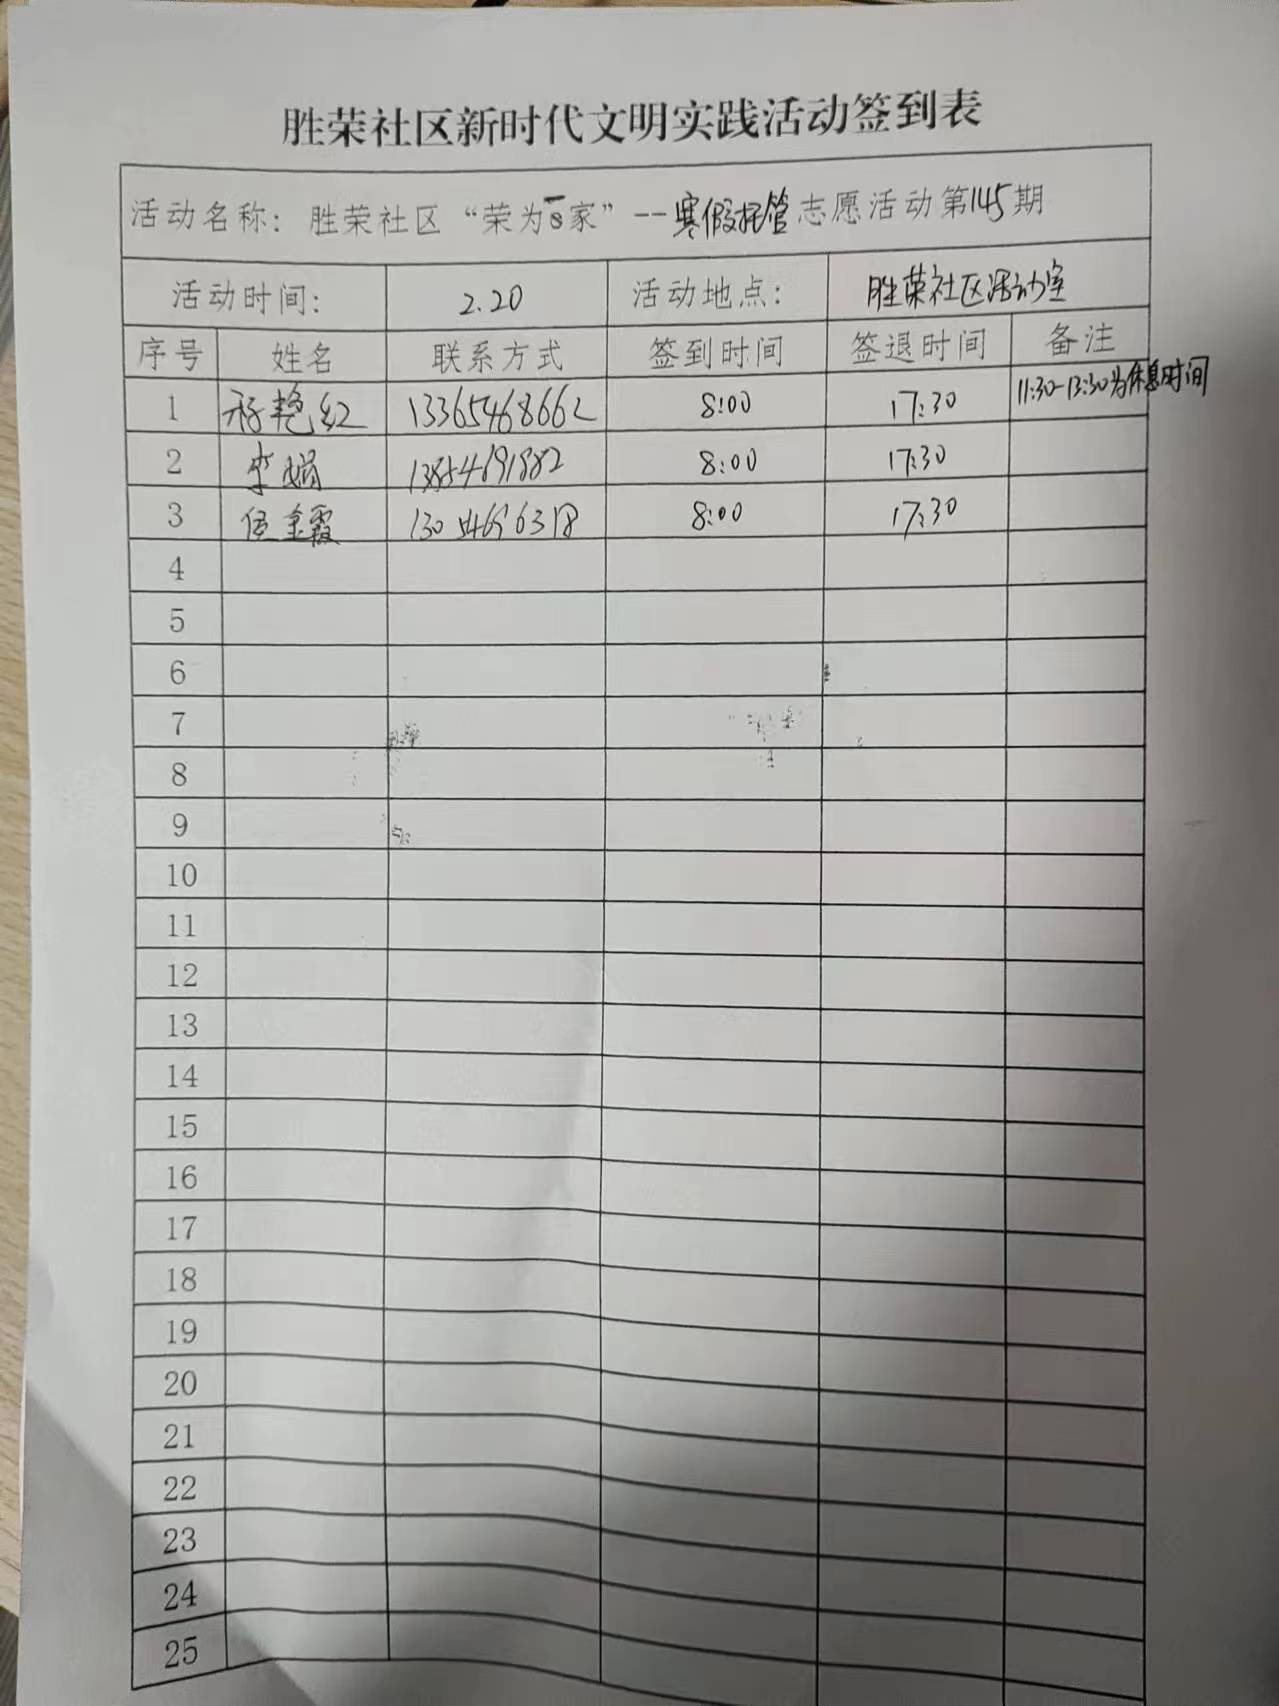 胜荣社区新时代文明实践活动签到表
活动名称：胜荣社区“荣为一家”--寒假托管志愿活动第145期
活动时间： 2.20 活动地点： 胜荣社区活动室
序号 姓名 联系方式 签到时间 签退时间 备注
1 艳红 13365468662 8:00 17:30 11:30-13:30为休息时间
2 李娟 13854691882 8:00 17:30
3 金霞 8:00 17:30
4
5
6
7
8
9
10
11
12
13
14
15
16
17
18
19
20
21
22
23
24
25